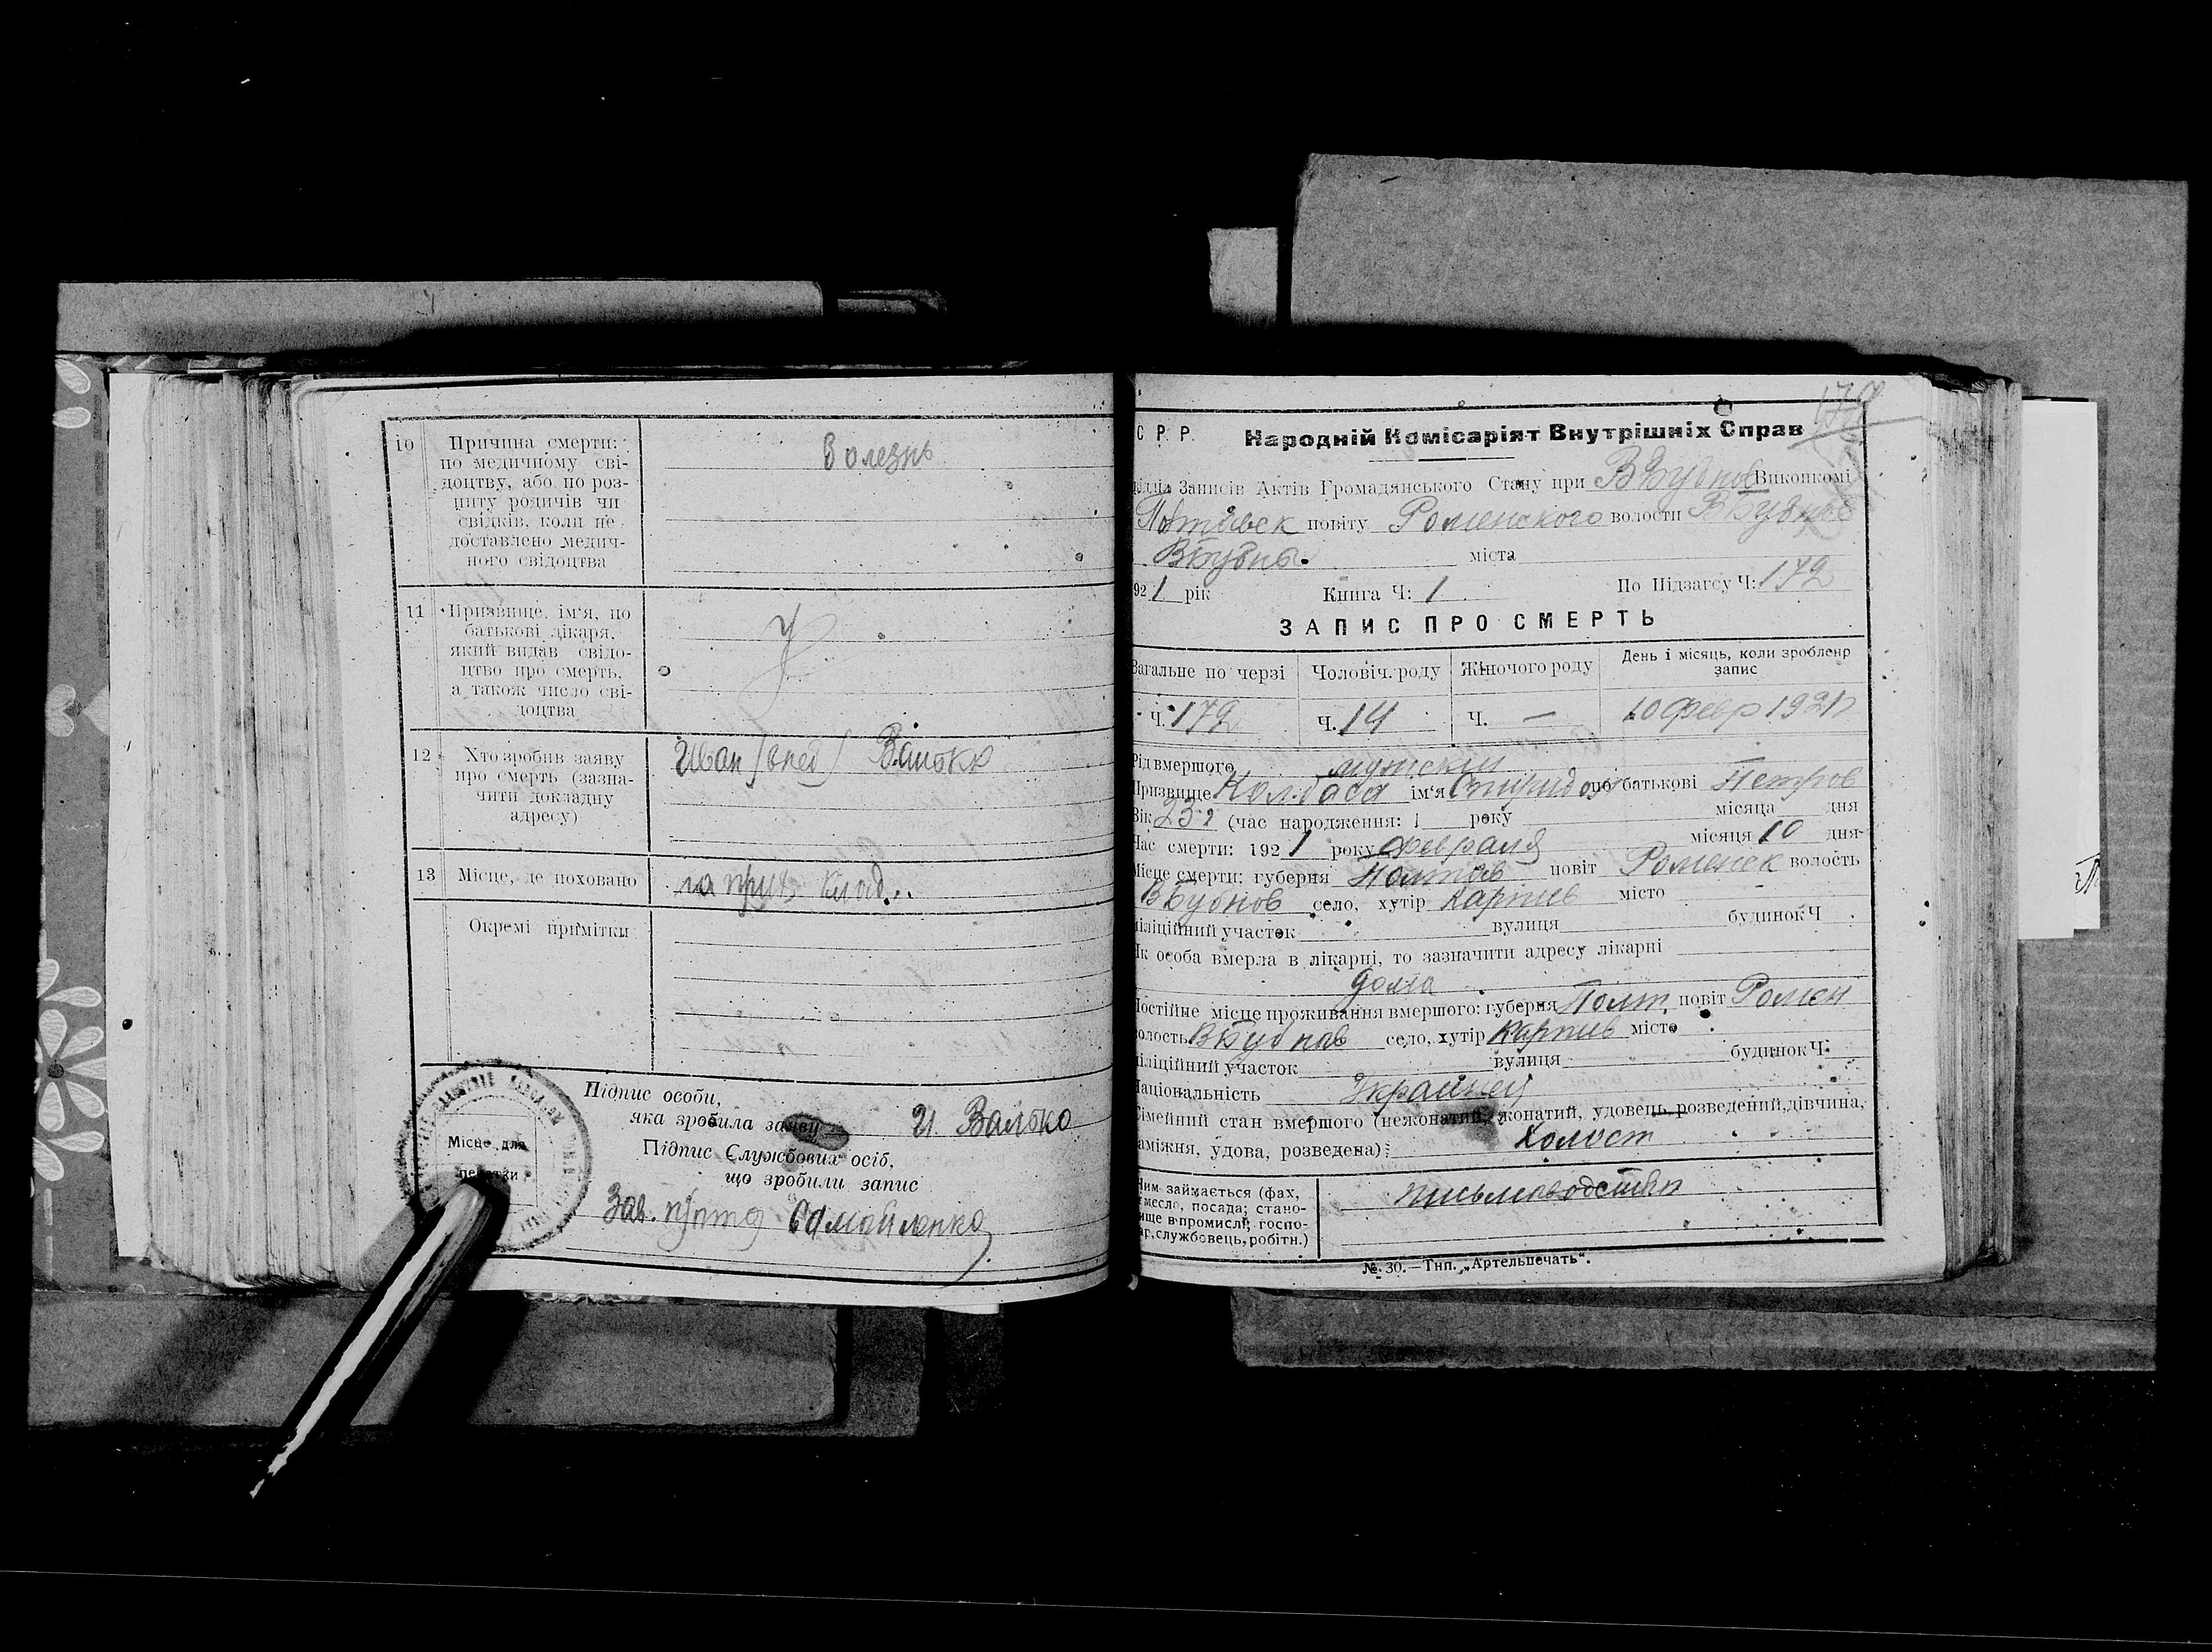 10 Причина смерти: Болезнь
по медичному сві-
доцтву, або по роз-
питу родичів чи
свідків, коли не
доставлено медич-
ного свідоцтва
11 Призвище, ім'я, по
батькові лікаря,
який видав свідо-
цтво про смерть,
а також число сві-
доцтва
12 Хто зробив заяву Иван Валько
про смерть (зазна-
чити докладну
адресу)
13 Місце, де поховано на прих. клад.
Окремі примітки
Підпис особи,
яка зробила заяву И. Валько
Місце для
печатки
Підпис Службових осіб,
що зробили запис
Зав. Самойленко
С. Р. Р. Народній Комісаріят Внутрішніх Справ
Записів Актів Громадянського Стану при ВБубнов Виконкомі
Полтавск повіту Роменского волости ВБубнов
ВБубны міста
1921 рік Книга Ч: 1 По Підзагсу Ч: 172
ЗАПИС ПРО СМЕРТЬ
Загальне по черзі Чоловіч. роду Жіночого роду День і місяць, коли зроблено
запис
Ч. 172 Ч. 14 Ч. — 10 февр 1921
Рід вмершого мужский
Призвище Колбаса ім'я Спиридон по батькові Петров
Вік 23 (час народження: 1 року місяца дня
Час смерти: 1921 року февраля місяця 10 дня
Місце смерти: губерня Полтав повіт Роменск волость
ВБубнов село, хутір Карпив місто
міліційний участок вулиця будинок Ч.
Як особа вмерла в лікарні, то зазначити адресу лікарні
дома
Постійне місце проживання вмершого: губерня Полт. повіт Ромен
волость ВБубнов село, хутір Карпив місто
міліційний участок вулиця будинок Ч.
Національність
Сімейний стан вмершого (нежонатий, жонатий, удовець, розведений, дівчина,
заміжня, удова, розведена): Холост
Чим займається (фах,
ремесло, посада; стано-
вище в промислі, госпо-
дар, службовець, робітн.)
№ 30.—Тип. „Артельпечать".